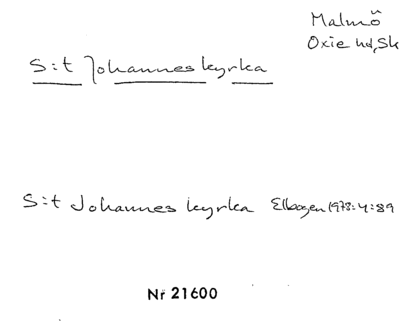 Malmö
Oxie hd, Sk
S:t Johannes kyrka
S:t Johannes kyrka Elbogen 1978:4:89
Nr 21600